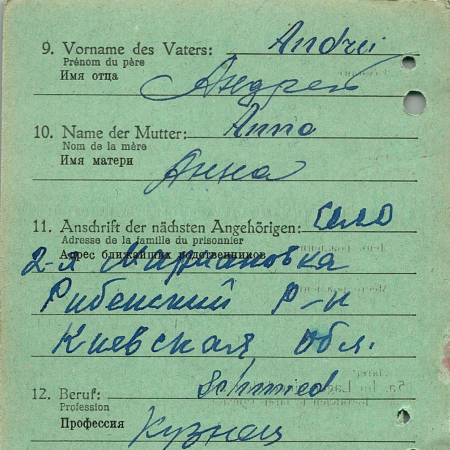 9. Vorname des Vaters: Andrei
Prénom du père
Имя отца Андрей
10. Name der Mutter: Anna
Nom de la mère
Имя матери Анна
11. Anschrift der nächsten Angehörigen: Село
Adresse de la famille du prisonnier
Адрес ближайших родственников
2-я Мариановка
Рибенский Р-н
Киевская обл.
12. Beruf: Schmied
Profession
Профессия Кузнец